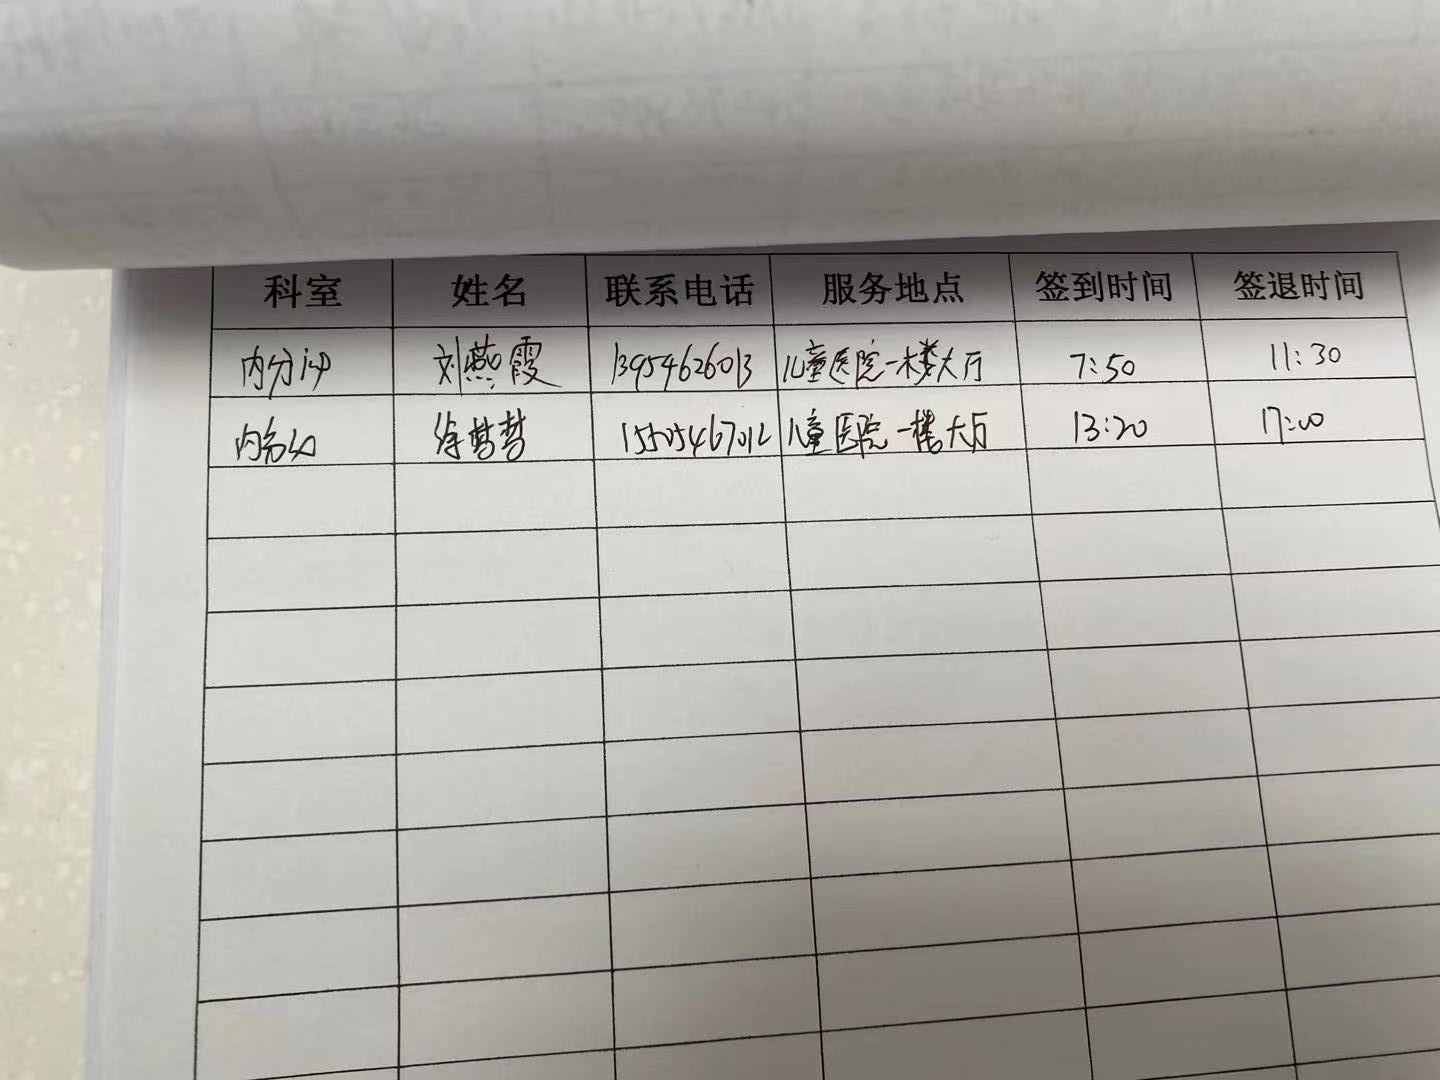 科室 姓名 联系电话 服务地点 签到时间 签退时间
内分泌 刘燕霞 13954626013 儿童医院一楼大厅 7:50 11:30
徐梦梦 15505467012 儿童医院一楼大厅 13:20 17:00